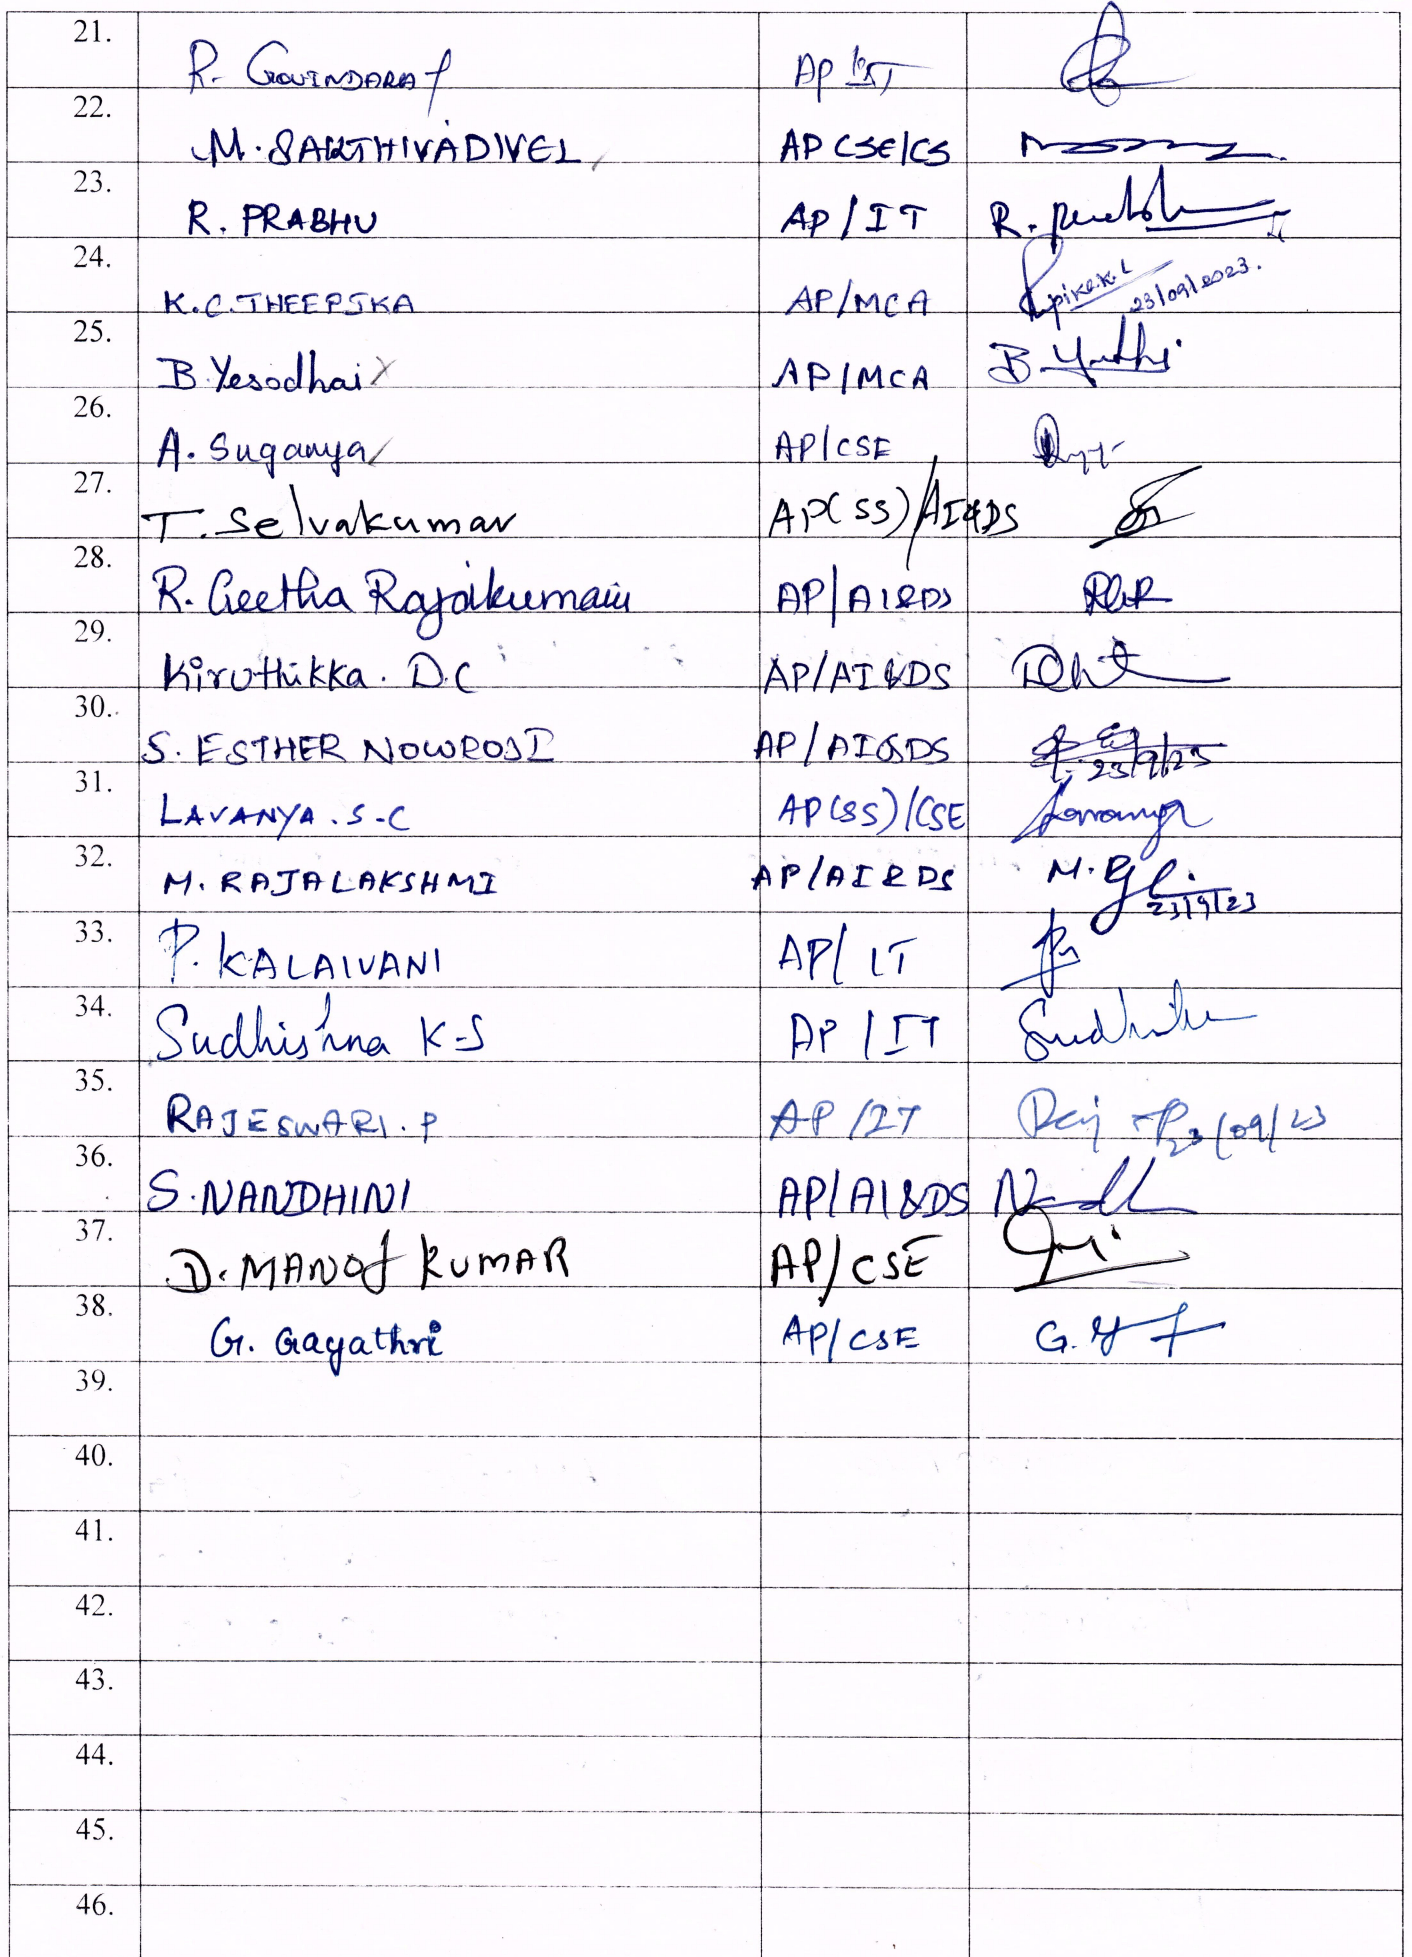 21. R. GOVINDARAJ AP IT
22. M. SAKTHIVADIVEL AP CSE/CS
23. R. PRABHU AP/IT R. Prabhu
24. K.C.THEEPIKA AP/MCA 23/09/2023.
25. B.Yesodhai AP/MCA B.
26. A. Suganya AP/CSE
27. T. Selvakumar AP(SS)/AI&DS
28. R. Geetha Rajakumari AP/AI&DS
29. Kiruthikka. D.C AP/AI&DS
30. S. ESTHER NOWROJI AP/AI&DS 23/9/23
31. LAVANYA.S.C AP(SS)/CSE Lavanya
32. M. RAJALAKSHMI AP/AI&DS M. 23/9/23
33. P. KALAIVANI AP/IT
34. Sudhishna K.S AP/IT
35. RAJESWARI.P AP/IT Raj 23/09/23
36. S.NANDHINI AP/AI&DS
37. D.MANOJ KUMAR AP/CSE
38. G. Gayathri AP/CSE G.
39.
40.
41.
42.
43.
44.
45.
46.